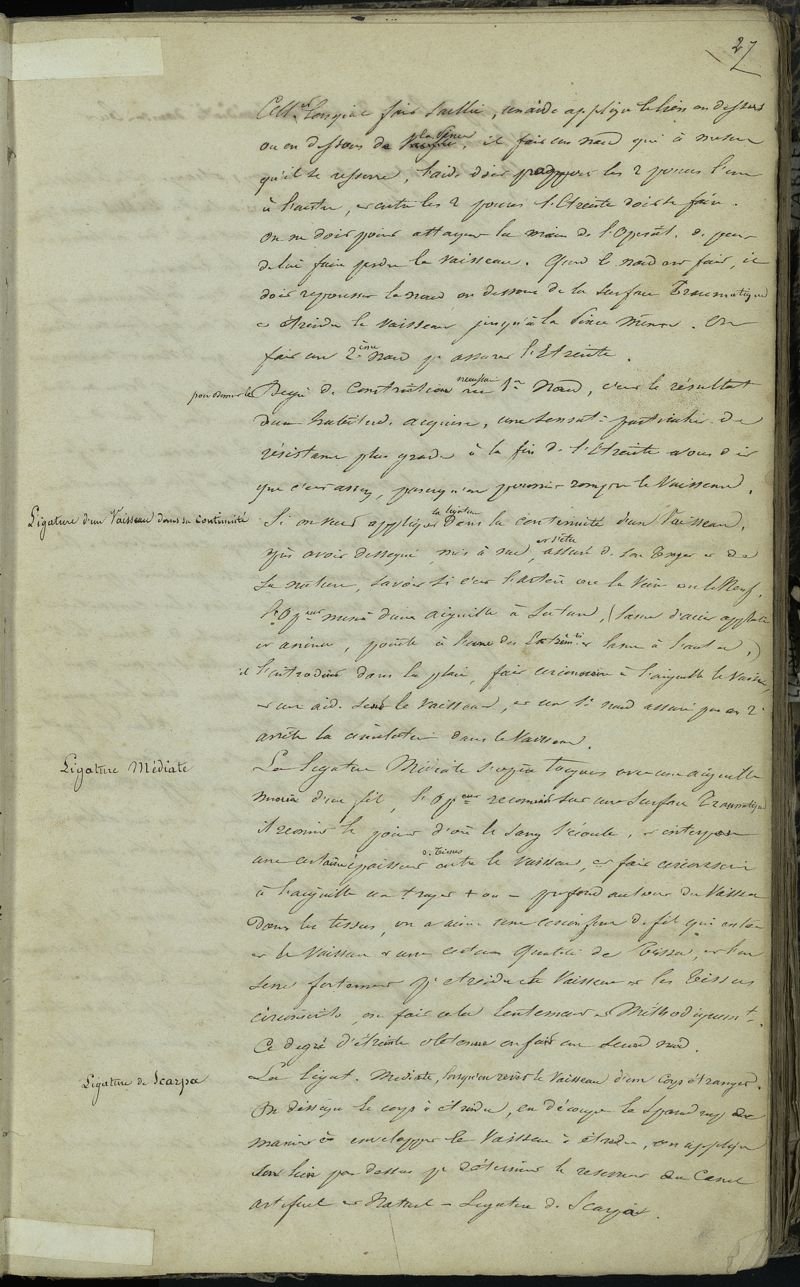 27
Celle ci fait saillie, un aide applique le lien en dessus
ou en dessous de la Pince, il fait un nœud qui à mesure
qu'il se resserre, l'aide doit les 2 pouces l'un
à l'autre, et entre les 2 pouces l'étreinte doit se faire.
On ne doit point attaquer la main de l'Opérat. de peur
de lui faire perdre le vaisseau. Quand le nœud est fait, il
doit repousser le nœud en dessous de la surface Traumatique
et étreindre le vaisseau jusqu'à la Pince même. On
fait un 2ième nœud pr assurer l'Etreinte.
pour donner le Degré de Constriction nécessaire au 1er Nœud, c'est le résultat
d'une habitude acquise, une sensat. particulière de
résistance plus grande à la fin de l'étreinte vous dit
que c'est assez, parcequ'on pourrait rompre le Vaisseau.
Ligature d'un Vaisseau dans sa continuité
Si on veut appliquer la ligature dans la continuité d'un Vaisseau,
après avoir disséqué, mis à nud, et s'être assuré de son trajet et de
sa nature, savoir si c'est l'artère ou la Veine ou le Nerf,
l'Opeur muni d'une aiguille à Suture, (lame d'acier applatie
et , pointe à l'une des Extrémités et lame à l'autre,)
il l'introduit dans la plaie, fait circonscrire à l'aiguille le Vaisseau,
et un aide serre le vaisseau, et un 1er nœud assuré par un 2e
arrête la circulation dans le Vaisseau.
Ligature Médiate
La ligature Médiate s'opère toujours avec une aiguille
munie d'un fil, l'Opeur reconnait sur une surface Traumatique
il reconnait le point d'où le sang s'écoule, et interpose
une certaine épaisseur de tissus entre le Vaisseau, et fait circonscrire
à l'aiguille un trajet + ou - profond autour du Vaisseau
dans les tissus, on a ainsi une de fil qui entoure
et le Vaisseau et une certaine Quantité de Tissu, et l'on
serre fortement pr étreindre le Vaisseau et les tissus
circonscrits, on fait cela lentement et Méthodiquemt.
Ce degré d'étreinte obtenu on fait un second nœud.
Ligature de Scarpa
La ligat. Médiate, lorsqu'on revêt le Vaisseau d'un Corps étranger.
On dissèque le corps à étreindre, on découpe le Sparadrap de
manière à envelopper le Vaisseau à étreindre, on applique
son lien par dessus pr déterminer le resserremt du Canal
artificiel et Naturel - Ligature de Scarpa.